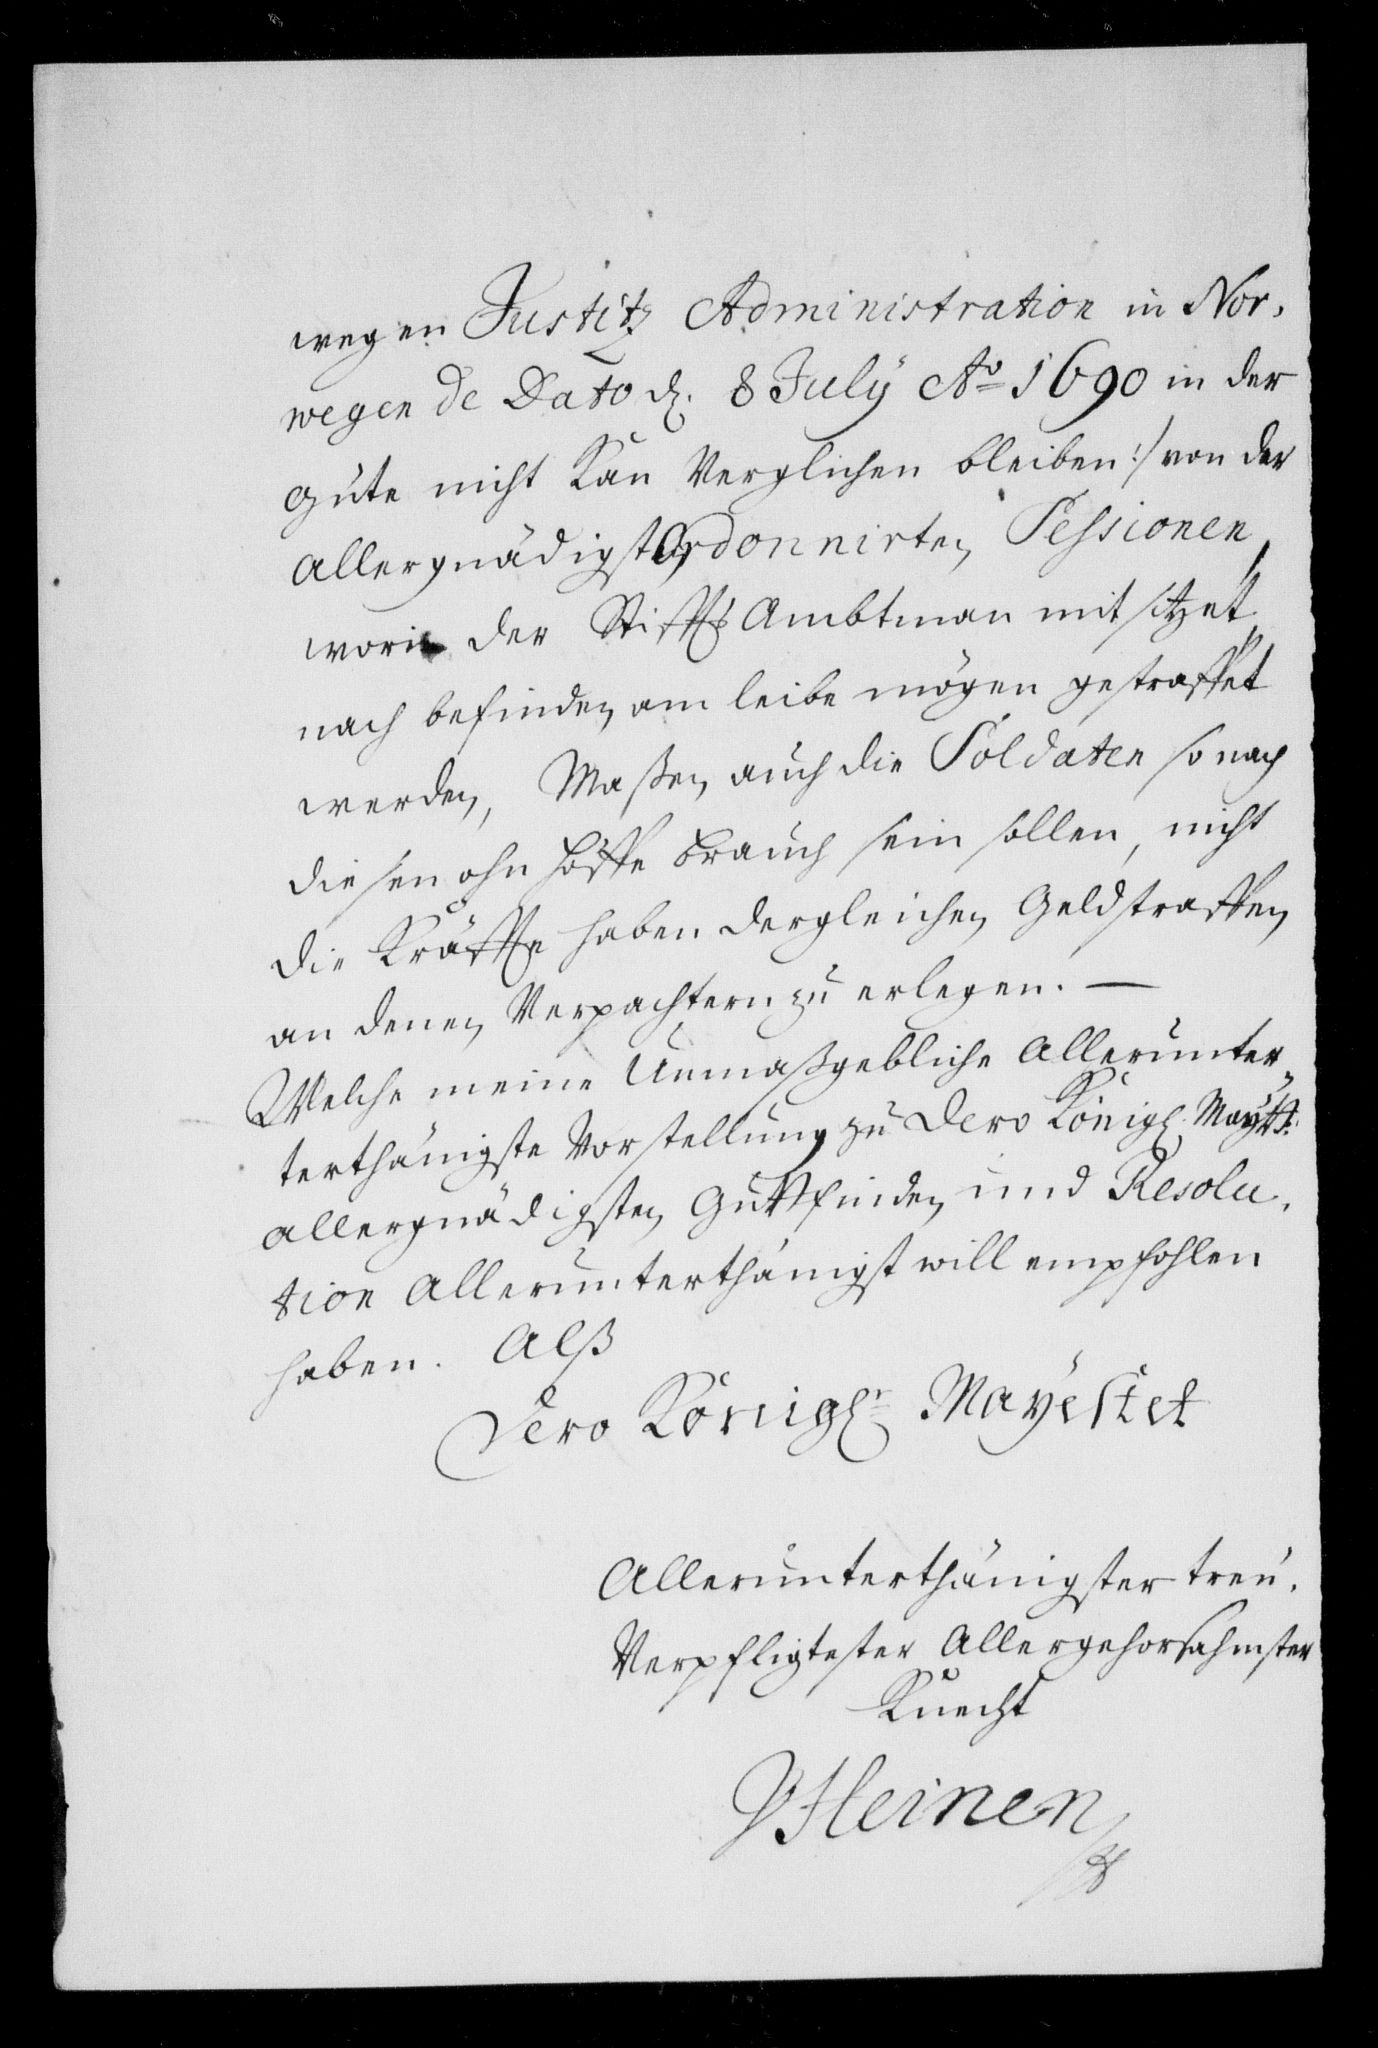 wegen Justitz Administration in Nor,
wegen de Dato d. 8 July Ao 1690 in der
güte nicht kan Verglichen bleiben :/ von der
Allergnädigst Ordonnirten Sessionen
worin der Stiffts Ambtman mit sitzet,
nach befinden am leibe mögen gestraffet
werden, Maßen auch die Soldaten so nach
diesen ohn brauch sein sollen, nicht
die Kräffte haben dergleichen Geldstraffen
an denen Verpachtern zu erlegen. —
Welche meine Unmaßgebliche Allerunter„
terthänigste Vorstellung zu Dero Königl. Maytt:
allergnädigsten Guttfinden und Resolu,
tion Allerunterthänigst will empfohlen
haben. Alß
Dero Königl: Mayestet
Allerunterthänigster treu,
Verpfligtester Allergehorsahmster
Knecht
Heinen